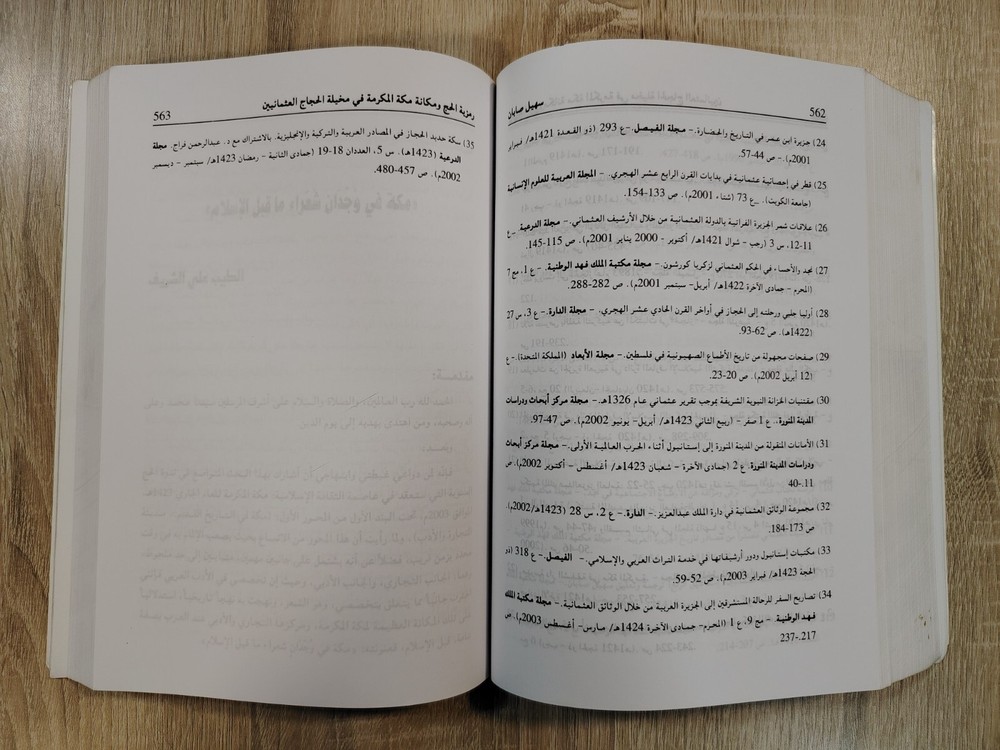 562
سهيل صابان
24) جزيرة ابن عمر في التاريخ والحضارة.- مجلة الفيصل.-ع 293 (ذو القعدة 1421هـ/ فبراير
2001م).- ص 44-57.
25) قطر في إحصائية عثمانية في بدايات القرن الرابع عشر الهجري.- المجلة العربية للعلوم الإنسانية
(جامعة الكويت). _ع 73 (شتاء 2001م). ص 133-154.
26) علاقات شمر الجزيرة الفراتية بالدولة العثمانية من خلال الأرشيف العثماني.- مجلة الدرعية -ع
11-12، س 3 (رجب - شوال 1421هـ/ أكتوبر - 2000 يناير 2001م). ص 115-145.
27) نجد والأحساء في الحكم العثماني لزكريا كورشون.- مجلة مكتبة الملك فهد الوطنية.- ع 1، مج 7
(المحرم - جمادى الآخرة 1422هـ/ أبريل- سبتمبر 2001م). ص 282-288.
28) أوليا جلبي ورحلته إلى الحجاز في أواخر القرن الحادي عشر الهجري.- مجلة الدارة.- ع 3، س 27
(1422هـ). ص 62-93.
29) صفحات مجهولة من تاريخ الأطماع الصهيونية في فلسطين.- مجلة الأبعاد (المملكة المتحدة).- ع
(12 أبريل 2002م). ص 20-23.
30) مقتنيات الخزانة النبوية الشريفة بموجب تقرير عثماني عام 1326هـ.- مجلة مركز أبحاث ودراسات
المدينة المنورة.. ع 1 صفر - (ربيع الثاني 1423هـ/ أبريل- يونيو 2002م). ص 47-97.
31) الأمانات المنقولة من المدينة المنورة إلى إستانبول أثناء الحرب العالمية الأولى.- مجلة مركز أبحاث
ودراسات المدينة المنورة. ع 2 (جمادى الآخرة - شعبان 1423هـ/ أغسطس - أكتوبر 2002م). ص
11.-40
32) مجموعة الوثائق العثمانية في دارة الملك عبدالعزيز.- الدارة.- ع 2، س 28 (1423هـ/2002م).
ص 173-184.
33) مكتبات إستانبول ودور أرشيفاتها في خدمة التراث العربي والإسلامي.- الفيصل.- ع 318 (ذو
الحجة 1423هـ/ فبراير 2003م). ص 52-59.
34) تصاريح السفر للرحالة المستشرقين إلى الجزيرة العربية من خلال الوثائق العثمانية.- مجلة مكتبة الملك
فهد الوطنية.- مج 9، ع 1 (المحرم- جمادى الآخرة 1424هـ/ مارس- أغسطس 2003م). ص
217.-237
رمزية الحج ومكانة مكة المكرمة في مخيلة الحجاج العثمانيين
563
35) سكة حديد الحجاز في المصادر العربية والتركية والإنجليزية. بالاشتراك مع د. عبدالرحمن فراج. مجلة
الدرعية (1423هـ). س 5، العددان 18-19 (جمادى الثانية - رمضان 1423هـ/ سبتمبر - ديسمبر
2002م). ص 457-480.